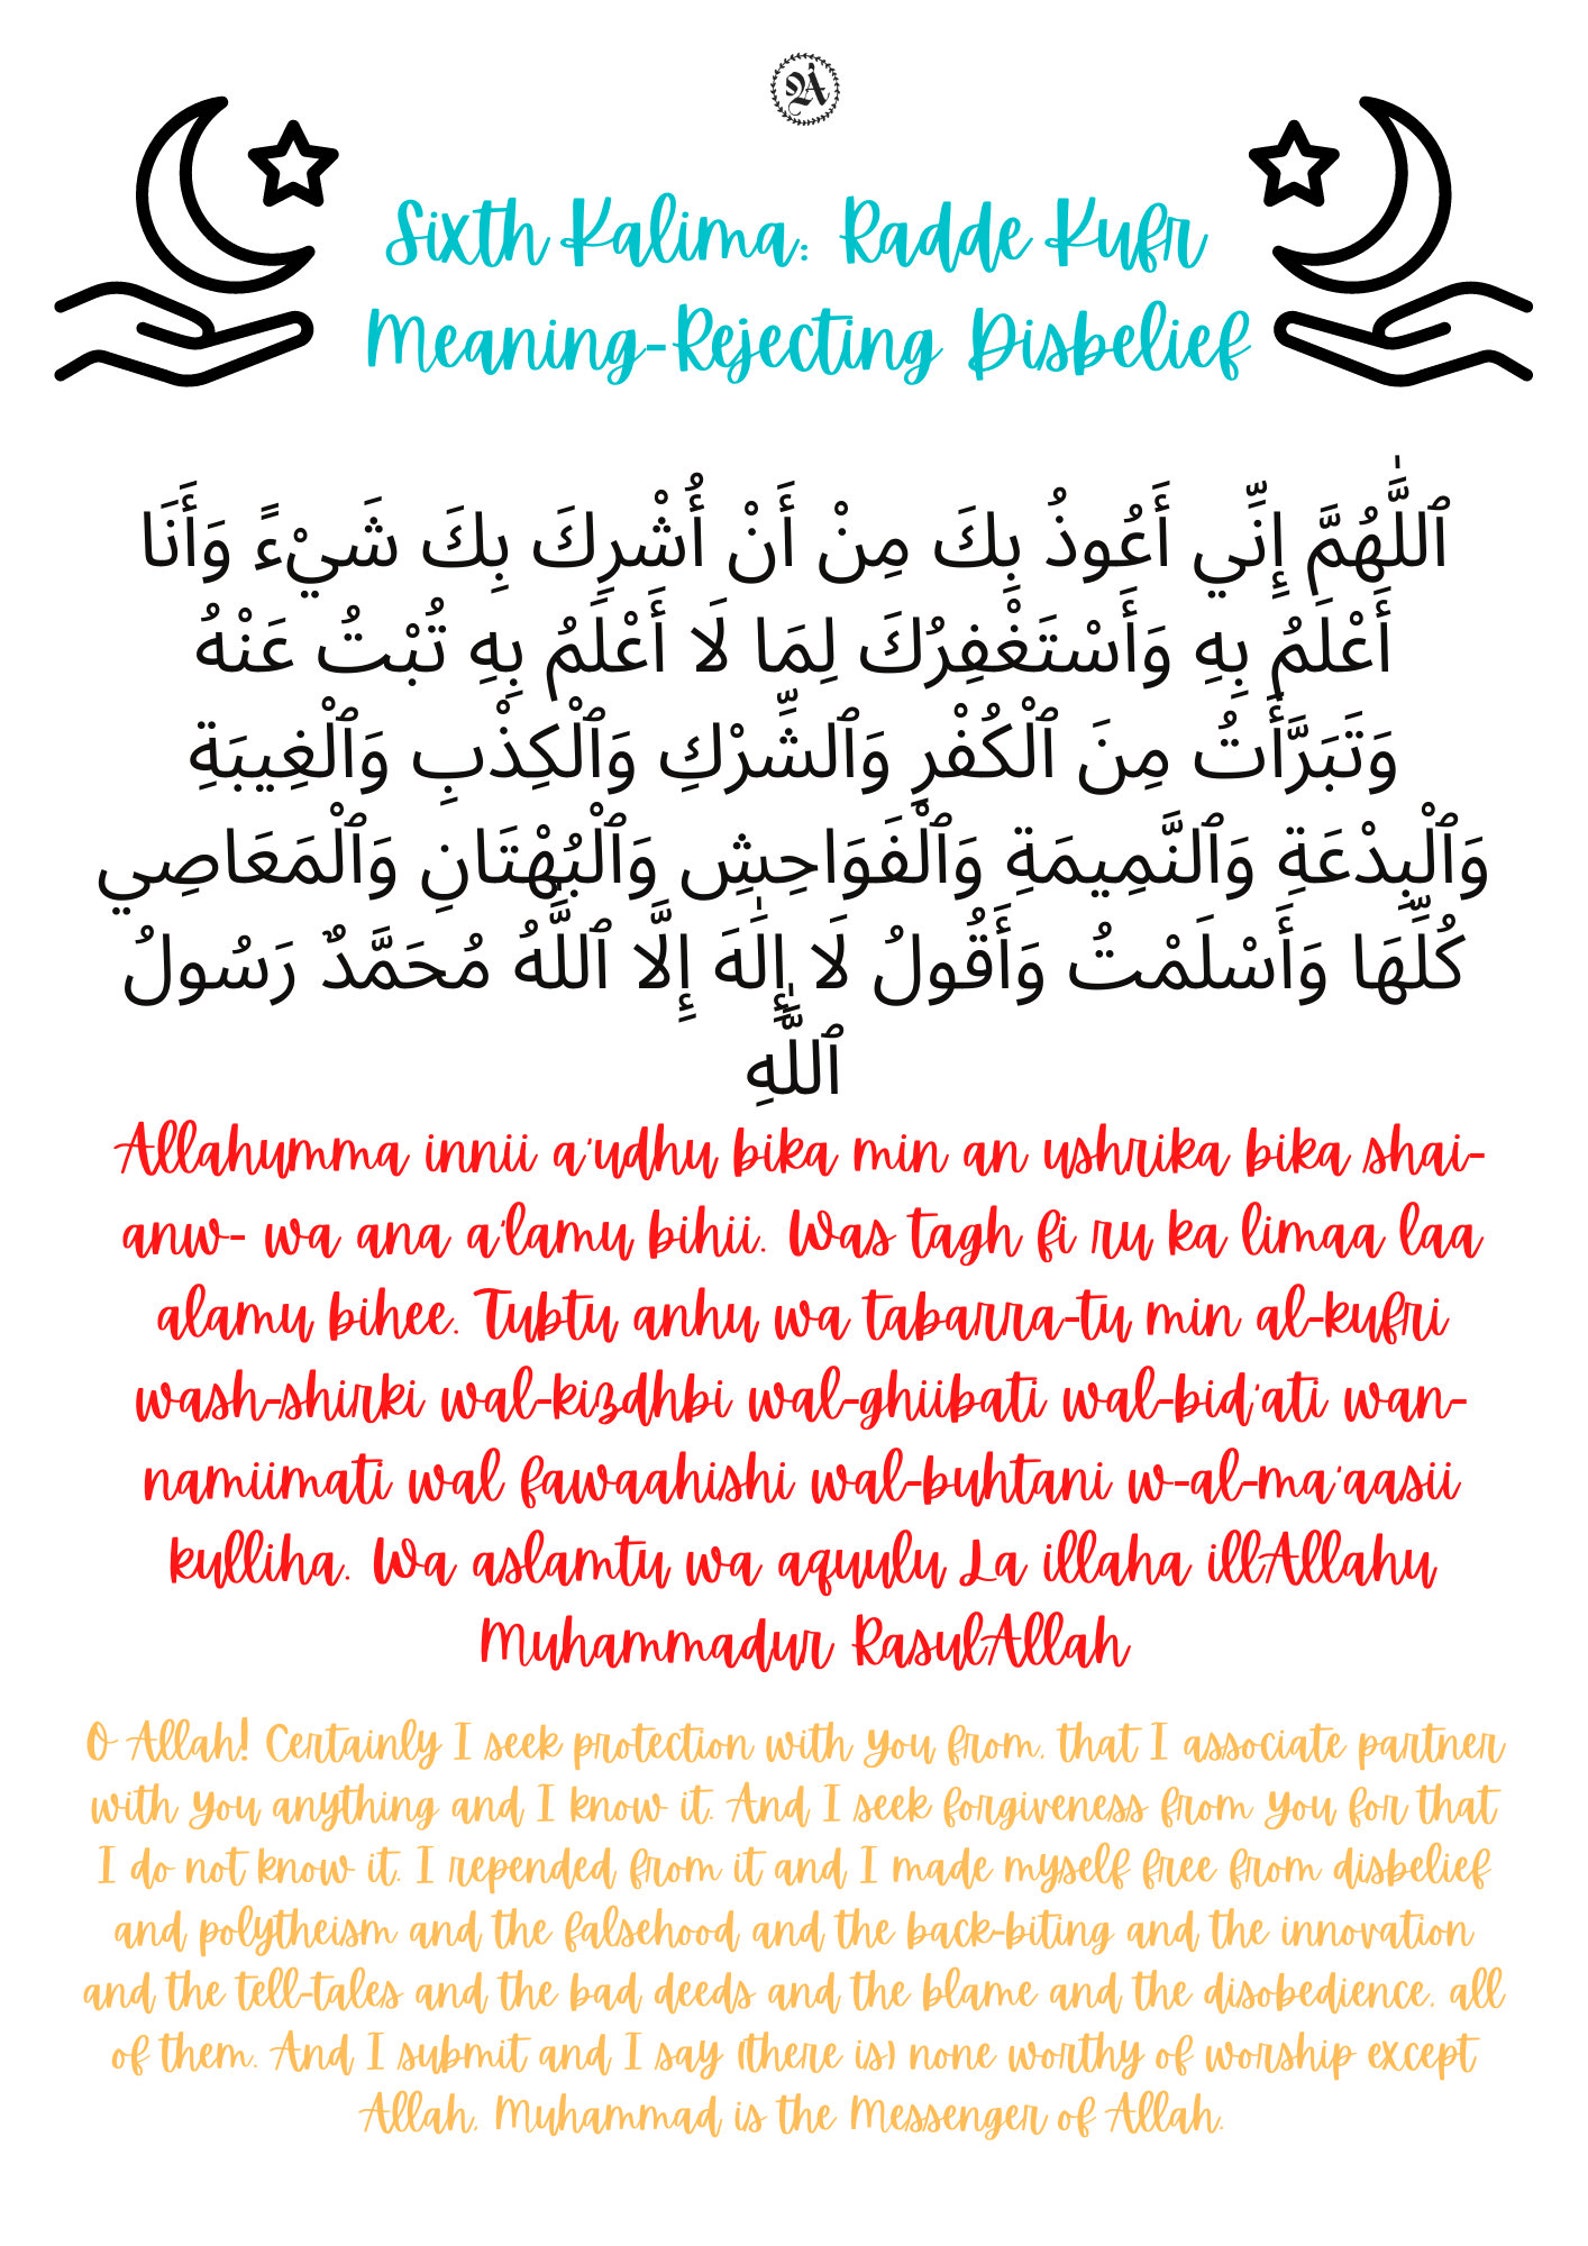 Sixth Kalima: Radde Kufr
Meaning-Rejecting Disbelief
ٱللَّٰهُمَّ إِنِّي أَعُوذُ بِكَ مِنْ أَنْ أُشْرِكَ بِكَ شَيْءً وَأَنَا
أَعْلَمُ بِهِ وَأَسْتَغْفِرُكَ لِمَا لَا أَعْلَمُ بِهِ تُبْتُ عَنْهُ
وَتَبَرَّأَتُ مِنَ ٱلْكُفْرِ وَٱلشِّرْكِ وَٱلْكِذْبِ وَٱلْغِيبَةِ
وَٱلْبِدْعَةِ وَٱلنَّمِيمَةِ وَٱلْفَوَاحِشِ وَٱلْبُهْتَانِ وَٱلْمَعَاصِي
كُلِّهَا وَأَسْلَمْتُ وَأَقُولُ لَا إِلَٰهَ إِلَّا ٱللَّٰهُ مُحَمَّدٌ رَسُولُ
ٱللَّٰهِ
Allahumma innii a'udhu bika min an ushrika bika shai-
anw- wa ana a'lamu bihii. Was tagh fi ru ka limaa laa
alamu bihee. Tubtu anhu wa tabarra-tu min al-kufri
wash-shirki wal-kizdhbi wal-ghiibati wal-bid'ati wan-
namiimati wal fawaahishi wal-buhtani w-al-ma'aasii
kulliha. Wa aslamtu wa aquulu La illaha illAllahu
Muhammadur RasulAllah
O Allah! Certainly I seek protection with You from, that I associate partner
with You anything and I know it. And I seek forgiveness from You for that
I do not know it. I repended from it and I made myself free from disbelief
and polytheism and the falsehood and the back-biting and the innovation
and the tell-tales and the bad deeds and the blame and the disobedience, all
of them. And I submit and I say (there is) none worthy of worship except
Allah, Muhammad is the Messenger of Allah.